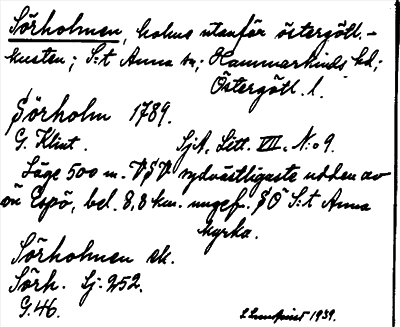 Sörholmen, holme utanför östergötl.-
kusten; S:t Anna sn; Hammarkinds hd;
Östergötl. l.
Sörholm 1789.
G. Klint. SjA, Litt. VII. N:o 9.
Läge 500 m. VSV sydvästligaste udden av
ön Espö, bel. 8,8 km. ungef. SO S:t Anna
kyrka.
Sörholmen ek.
Sörh. Sj. 252.
G. 46.
1939.